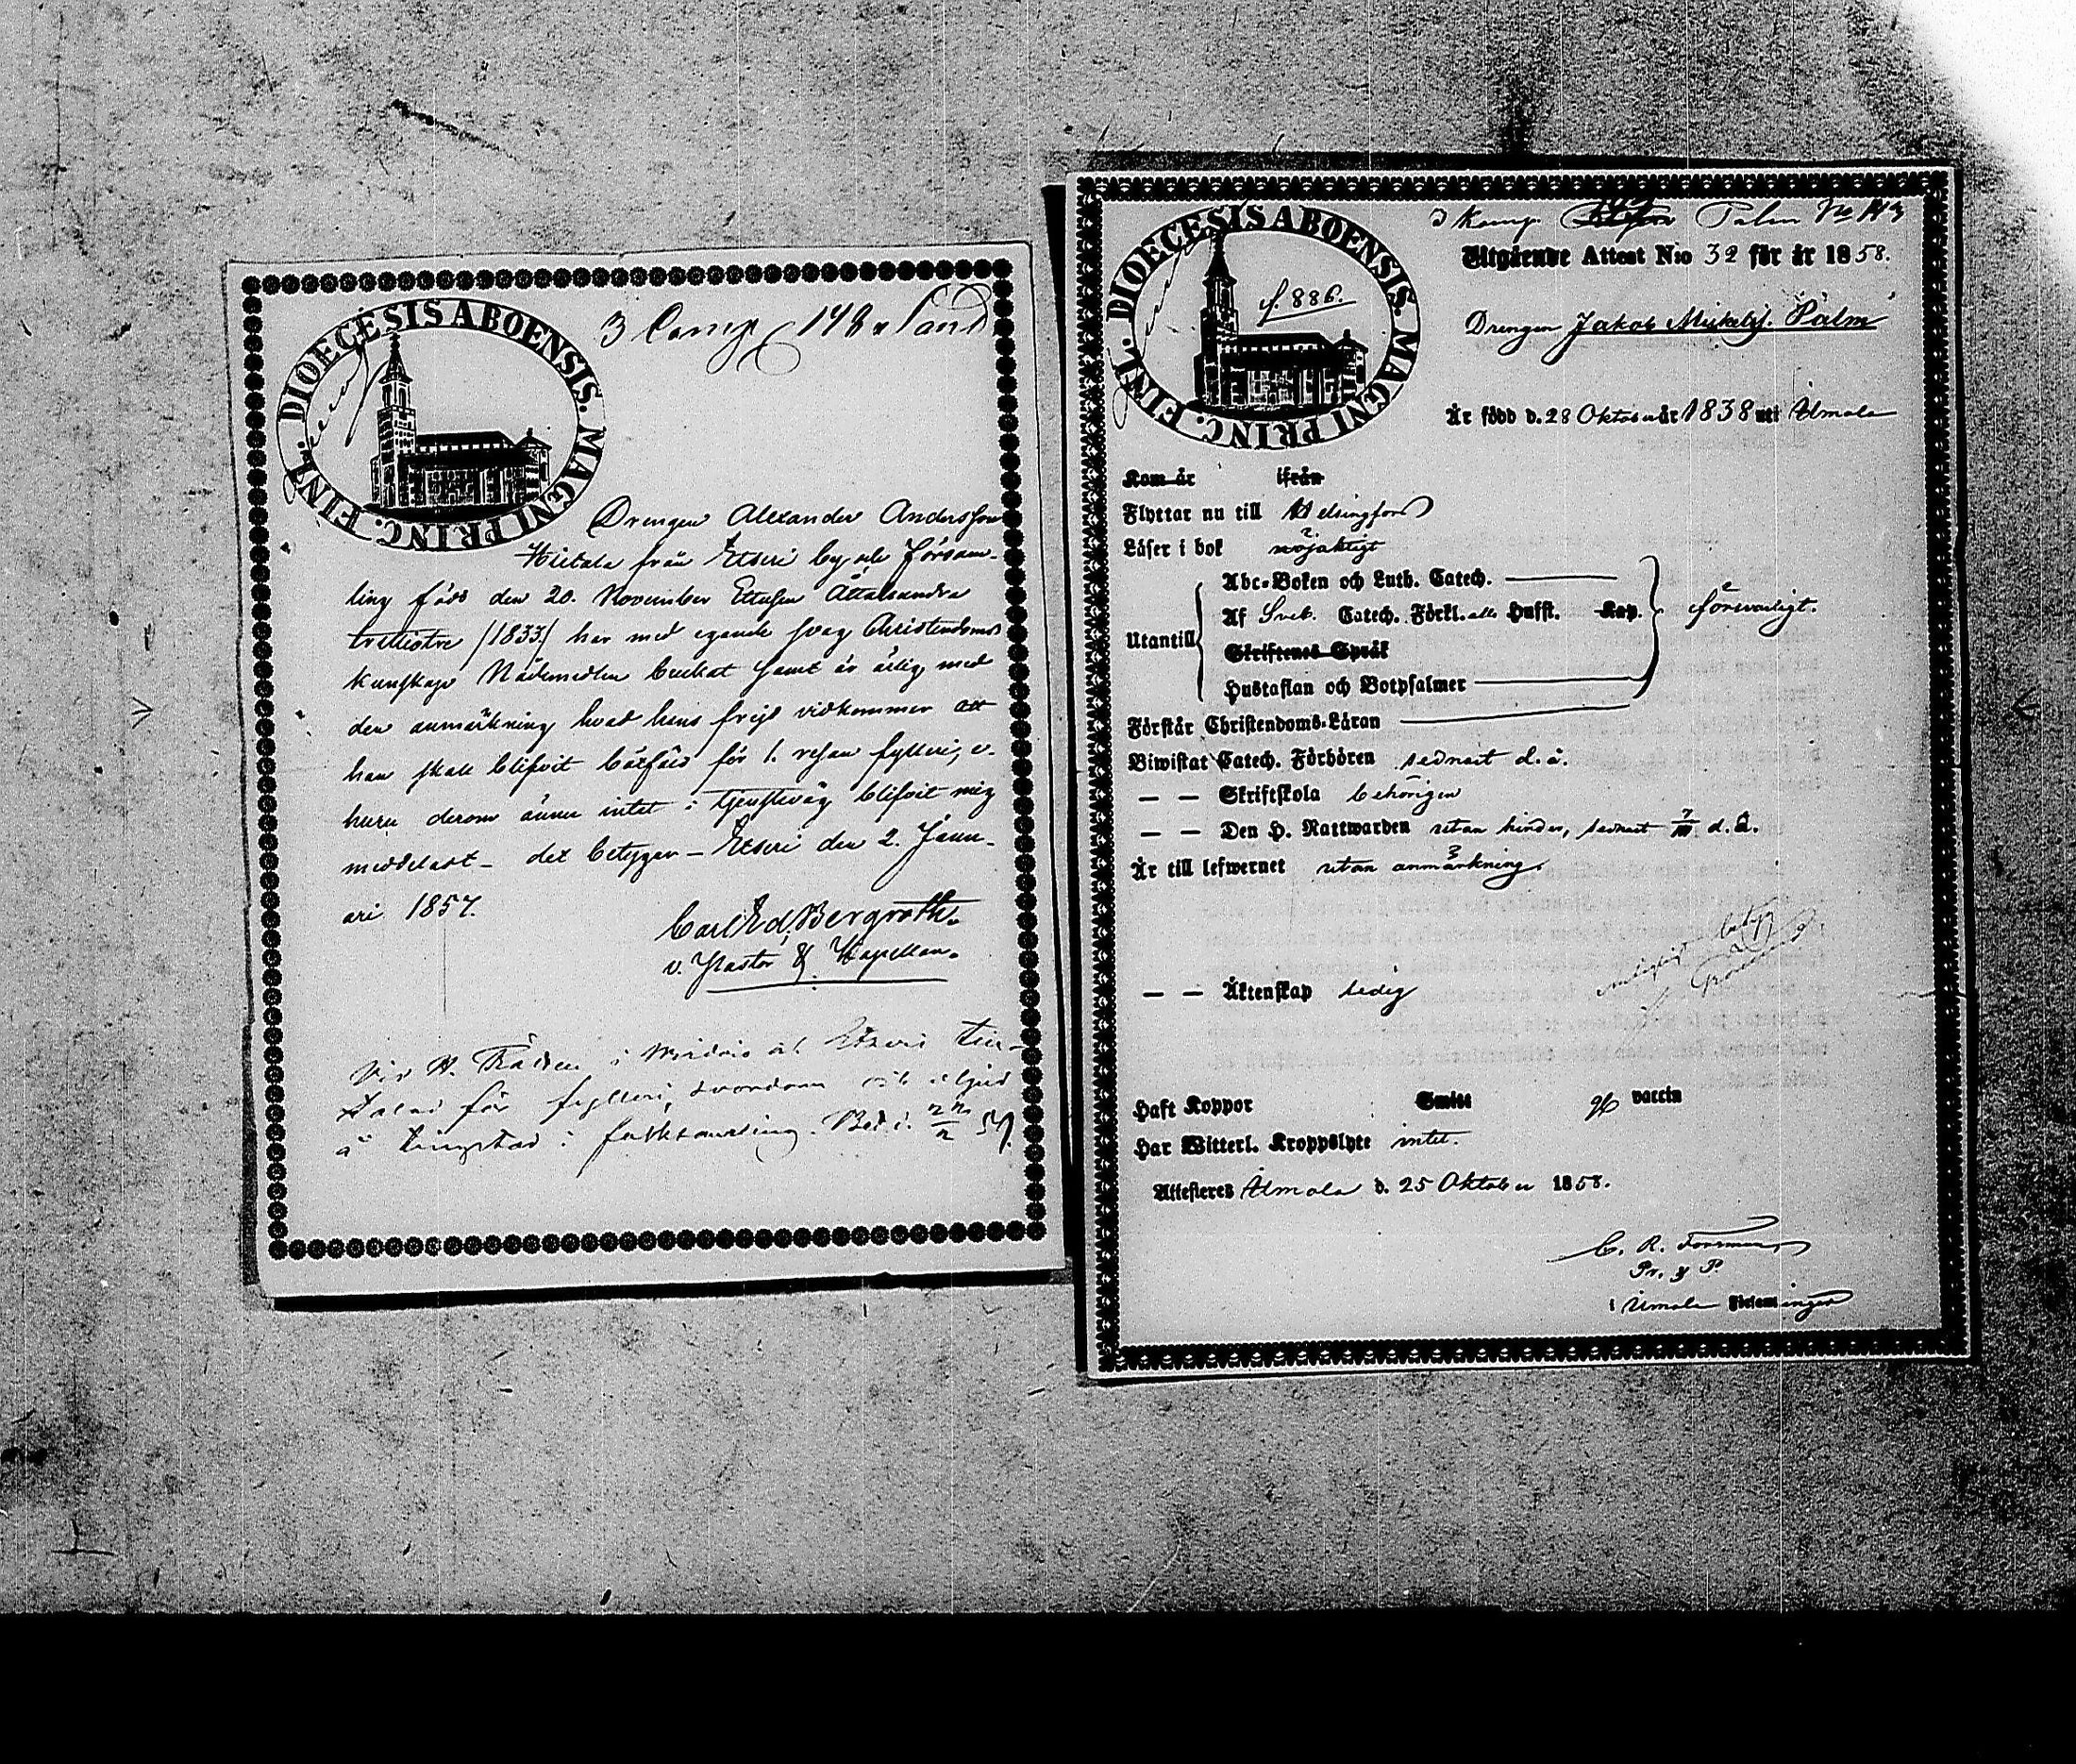 DIOECESIS ABOENSIS. MAGNI PRINC. FINL.
3 Comp. 148 Sand
Drengen Alexander Andersson
Hietala från Etseri by och försam-
ling född den 20. November Ettusen Åttahundra
trettiotre /1833/ har med egande svag Christendoms
kunskap Nådemedlen brukat samt är ärlig med
den anmärkning hvad hans frejd vidkommer att
han skall blifvit bötfäld för 1. resan fylleri, e-
huru derom ännu intet i tjensteväg blifvit mig
meddeladt – det betygar – Etseri den 2. Janu-
ari 1857.
Carl Ed. Bergroth.
v. Pastor & Kapellan.
Vid H. Råtten i Wirdois och Etseri tin-
för fylleri, svordom och oljud
å tingstad i folksamling.
DIOECESIS ABOENSIS. MAGNI PRINC. FINL.
f. 886.
3 Komp. Palm No 113
Utgående Attest N:o 32 för år 1858.
Drengen Jakob Mickelss. Palm
Är född d. 28 Oktober år 1838 uti Ilmola
Kom år ifrån
Flyttar nu till Helsingfors
Läser i bok nöjaktigt
Utantill
Abc-Boken och Luth. Catech.
Af Sveb. Catech. Förkl. alla Hufft. Kap.
Skriftenes Språk
Hustaflan och Botpsalmer
försvarligt.
Förstår Christendoms-Läran
Biwistat Catech. Förhören sednast d. å.
— — Skriftskola behörigen
— — Den H. Nattwarden utan hinder, sednast 7/III d. å.
Är till lefwernet utan anmärkning.
— — Äktenskap ledig
Haft Koppor Smitt vaccin
Har Witterl. Kroppslyte intet.
Attesteres Ilmola d. 25 Oktober 1858.
C. R. Forsman
Pr. & P.
i Ilmola Församlingar